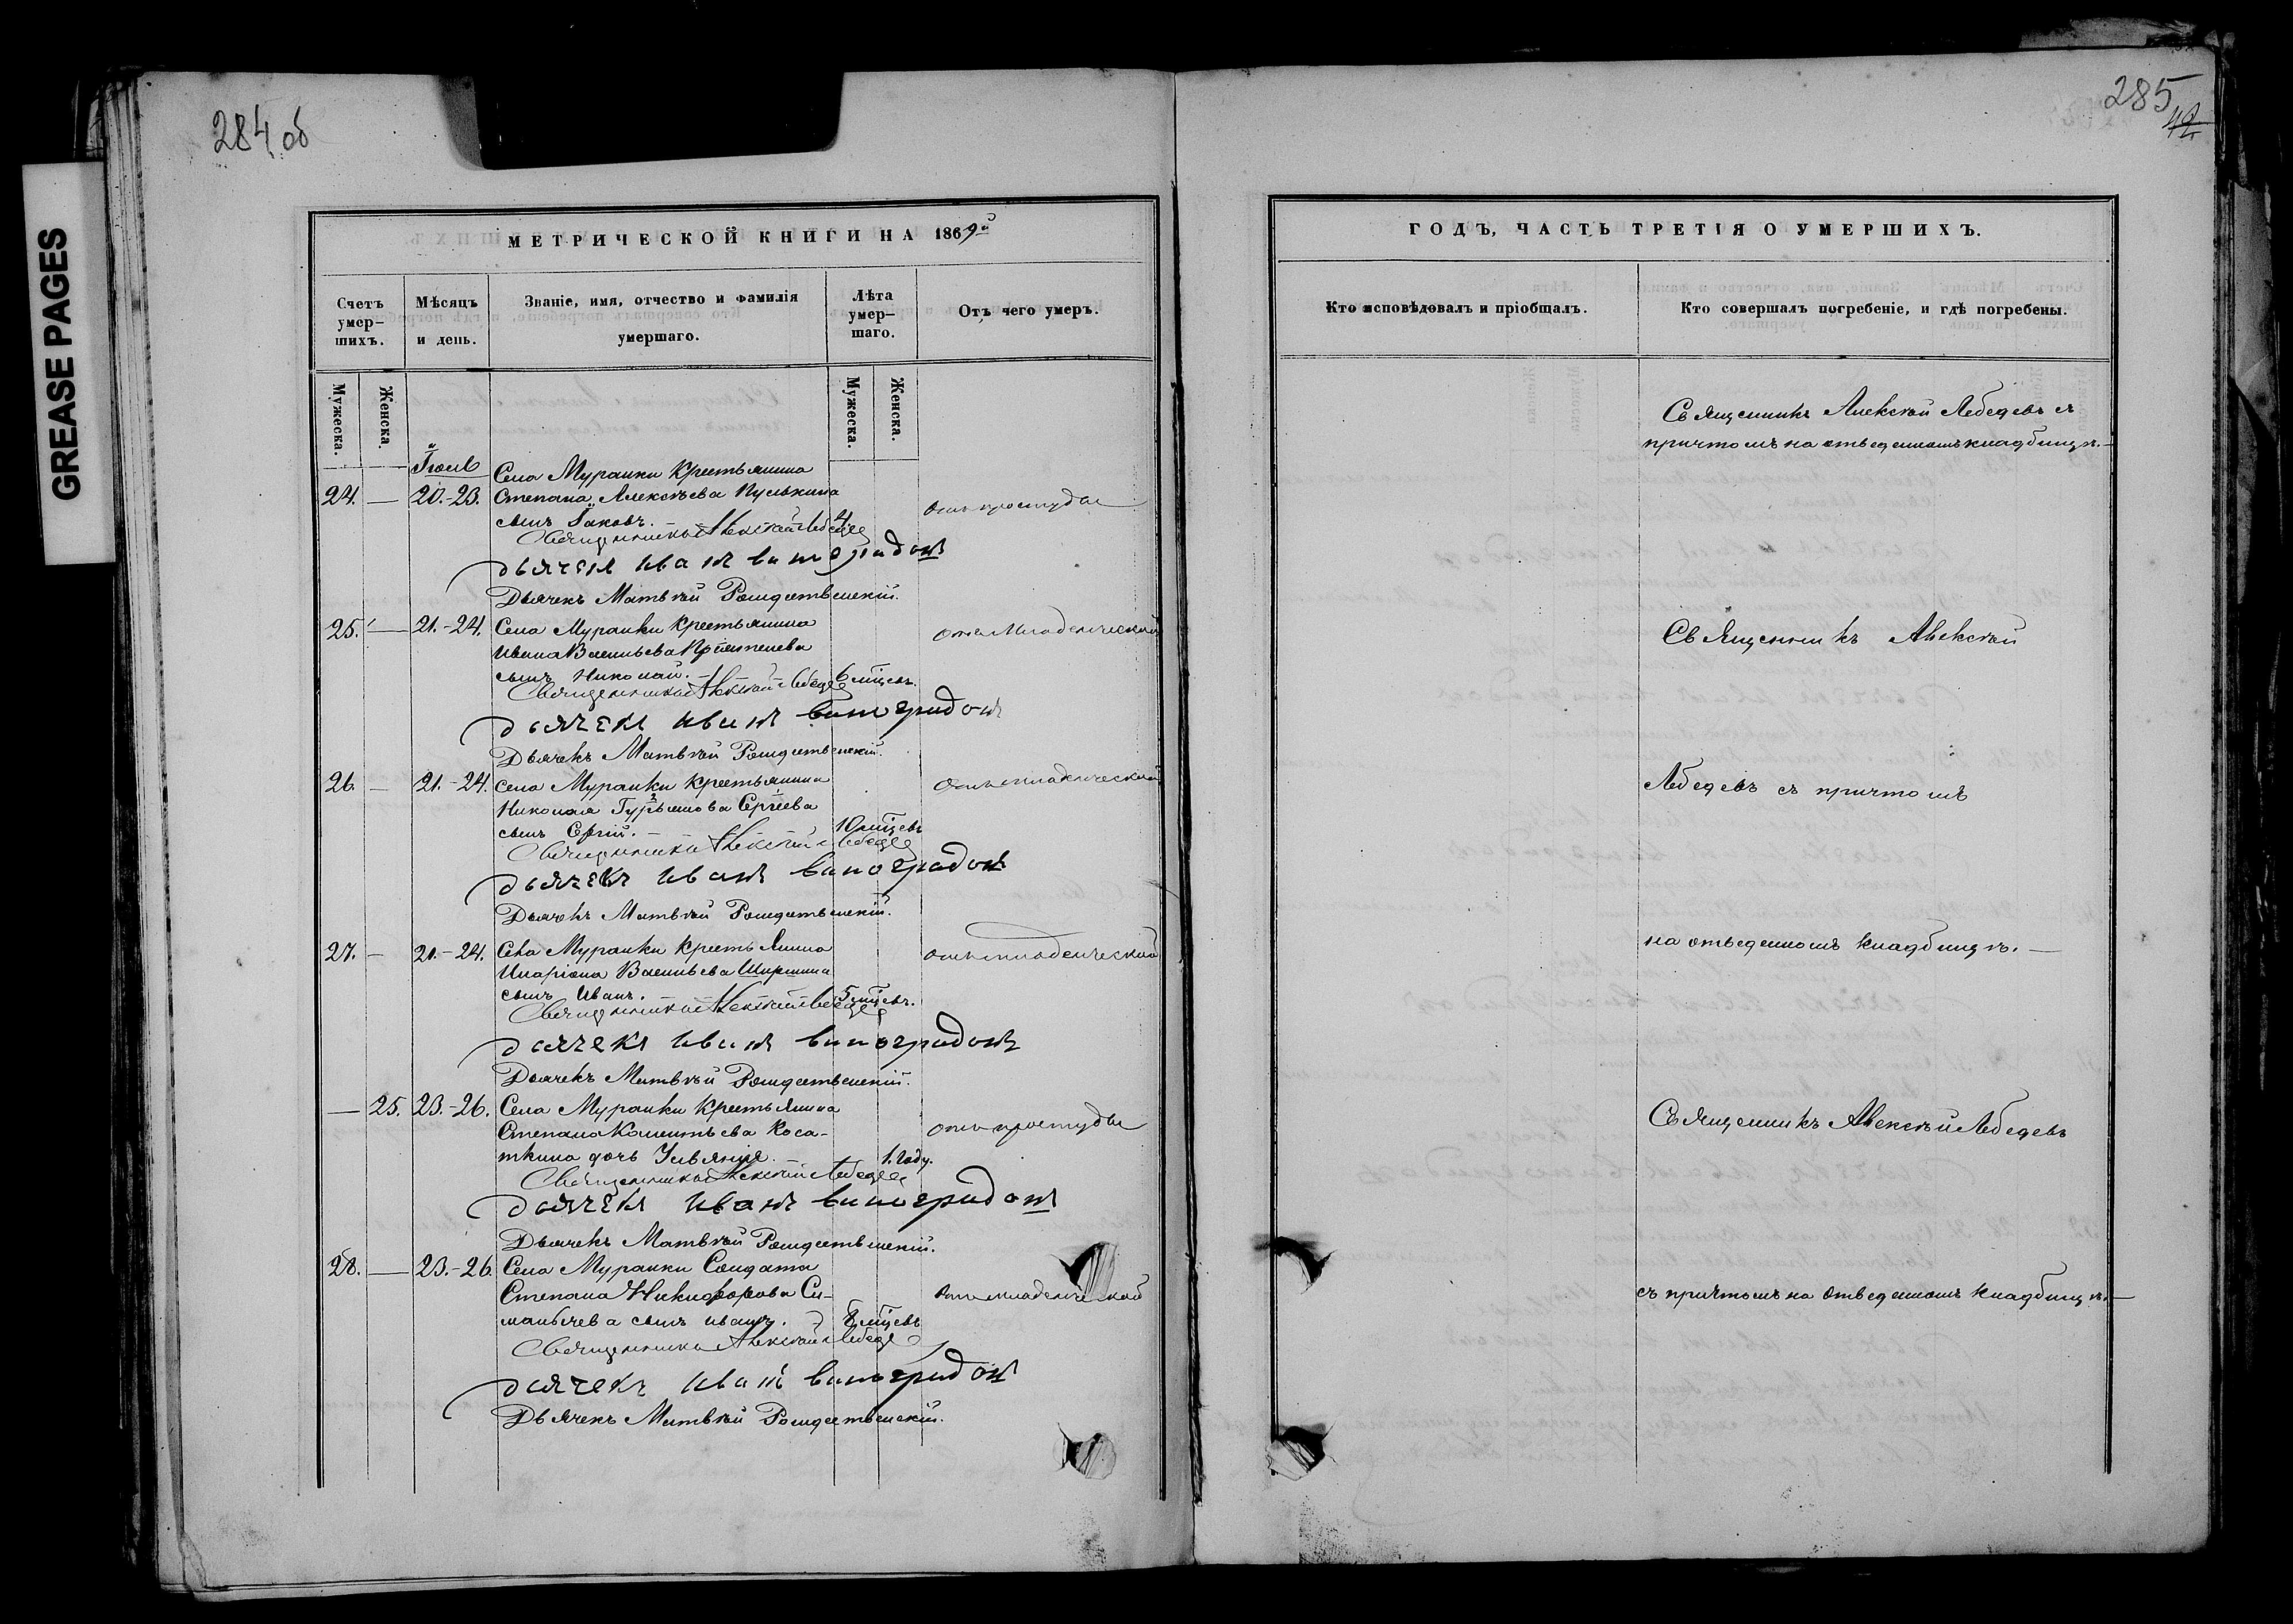 GREASE PAGES
284 об
МЕТРИЧЕСКОЙ КНИГИ НА 1869й
Счетъ умер-шихъ.
Мѣсяцъ и день.
Званіе, имя, отчество и фамилія умершаго.
Лѣта умер-шаго.
Отъ чего умеръ.
Мужеска.
Женска.
Мужеска.
Женска.
Іюль
Села Муранки Крестьянина
24. — 20.-23. Степана Алексѣева Пулькина
отъ простуды
сынъ Іаковъ. — 4
Священникъ Алексѣй Лебедев
Дьячекъ Иванъ Виноградовъ
Дьячекъ Матвѣй Рождественскій.
25. — 21.-24. Села Муранки Крестьянина
отъ младенческой
Ивана Васильева
сынъ Николай. — 6 мцевъ.
Священникъ Алексѣй Лебедев
Дьячекъ Иванъ Виноградовъ
Дьячекъ Матвѣй Рождественскій.
26. — 21.-24. Села Муранки Крестьянина
отъ младенческой
Николая Гурьянова Сергѣева
сынъ Сергій. — 10 мцевъ
Священникъ Алексѣй Лебедев
Дьячекъ Иванъ Виноградовъ
Дьячекъ Матвѣй Рождественскій.
27. — 21.-24. Села Муранки Крестьянина
отъ младенческой
Иларіона Васильева Ширшина
сынъ Иванъ. 5 мцевъ.
Священникъ Алексѣй Лебедев
Дьячекъ Иванъ Виноградовъ
Дьячекъ Матвѣй Рождественскій.
— 25. 23.-26. Села Муранки Крестьянина
Степана Климентьева Коса-
отъ простуды
ткина дочь Ульянія. 1. году.
Священникъ Алексѣй Лебедев
Дьячекъ Иванъ Виноградовъ
Дьячекъ Матвѣй Рождественскій.
28. — 23.-26. Села Муранки Солдата
Степана Никифорова Си-
отъ младенческой
сынъ Иванъ. 8 мцевъ
Священникъ Алексѣй Лебедев
Дьячекъ Иванъ Виноградовъ
Дьячекъ Матвѣй Рождественскій.
285
42
ГОДЪ, ЧАСТЬ ТРЕТІЯ О УМЕРШИХЪ.
Кто исповѣдовалъ и пріобщалъ.
Кто совершалъ погребеніе, и гдѣ погребены.
Священникъ Алексѣй Лебедевъ съ
причтомъ на отведенномъ кладбищѣ. —
Священникъ Алексѣй
Лебедевъ съ причтомъ
на отведенномъ кладбищѣ. —
Священникъ Алексѣй Лебедевъ
съ причтомъ на отведенномъ кладбищѣ. —